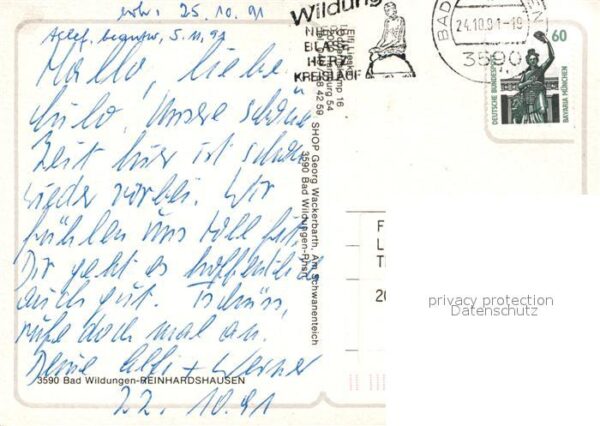 erh. 25.10.91
5.11.91
Hallo, liebe
unsere schöne
Zeit hier ist schon
wieder vorbei. Wir
fühlen uns toll fit.
Dir geht es hoffentlich
auch gut. Tschüss,
rufe doch mal an.
Deine Elfi + Werner
22.10.91
3590 Bad Wildungen-REINHARDSHAUSEN
SHOP Georg Wackerbarth, Am Schwanenteich
3590 Bad Wildungen-Rhsn
Wildung
NIE
BLASE
HERZ
KREISLAUF
BAD
24.10.91-19
3590
60
DEUTSCHE BUNDESPOST
BAYARIA MÜNCHEN
F
L
T
20
privacy protection
Datenschutz